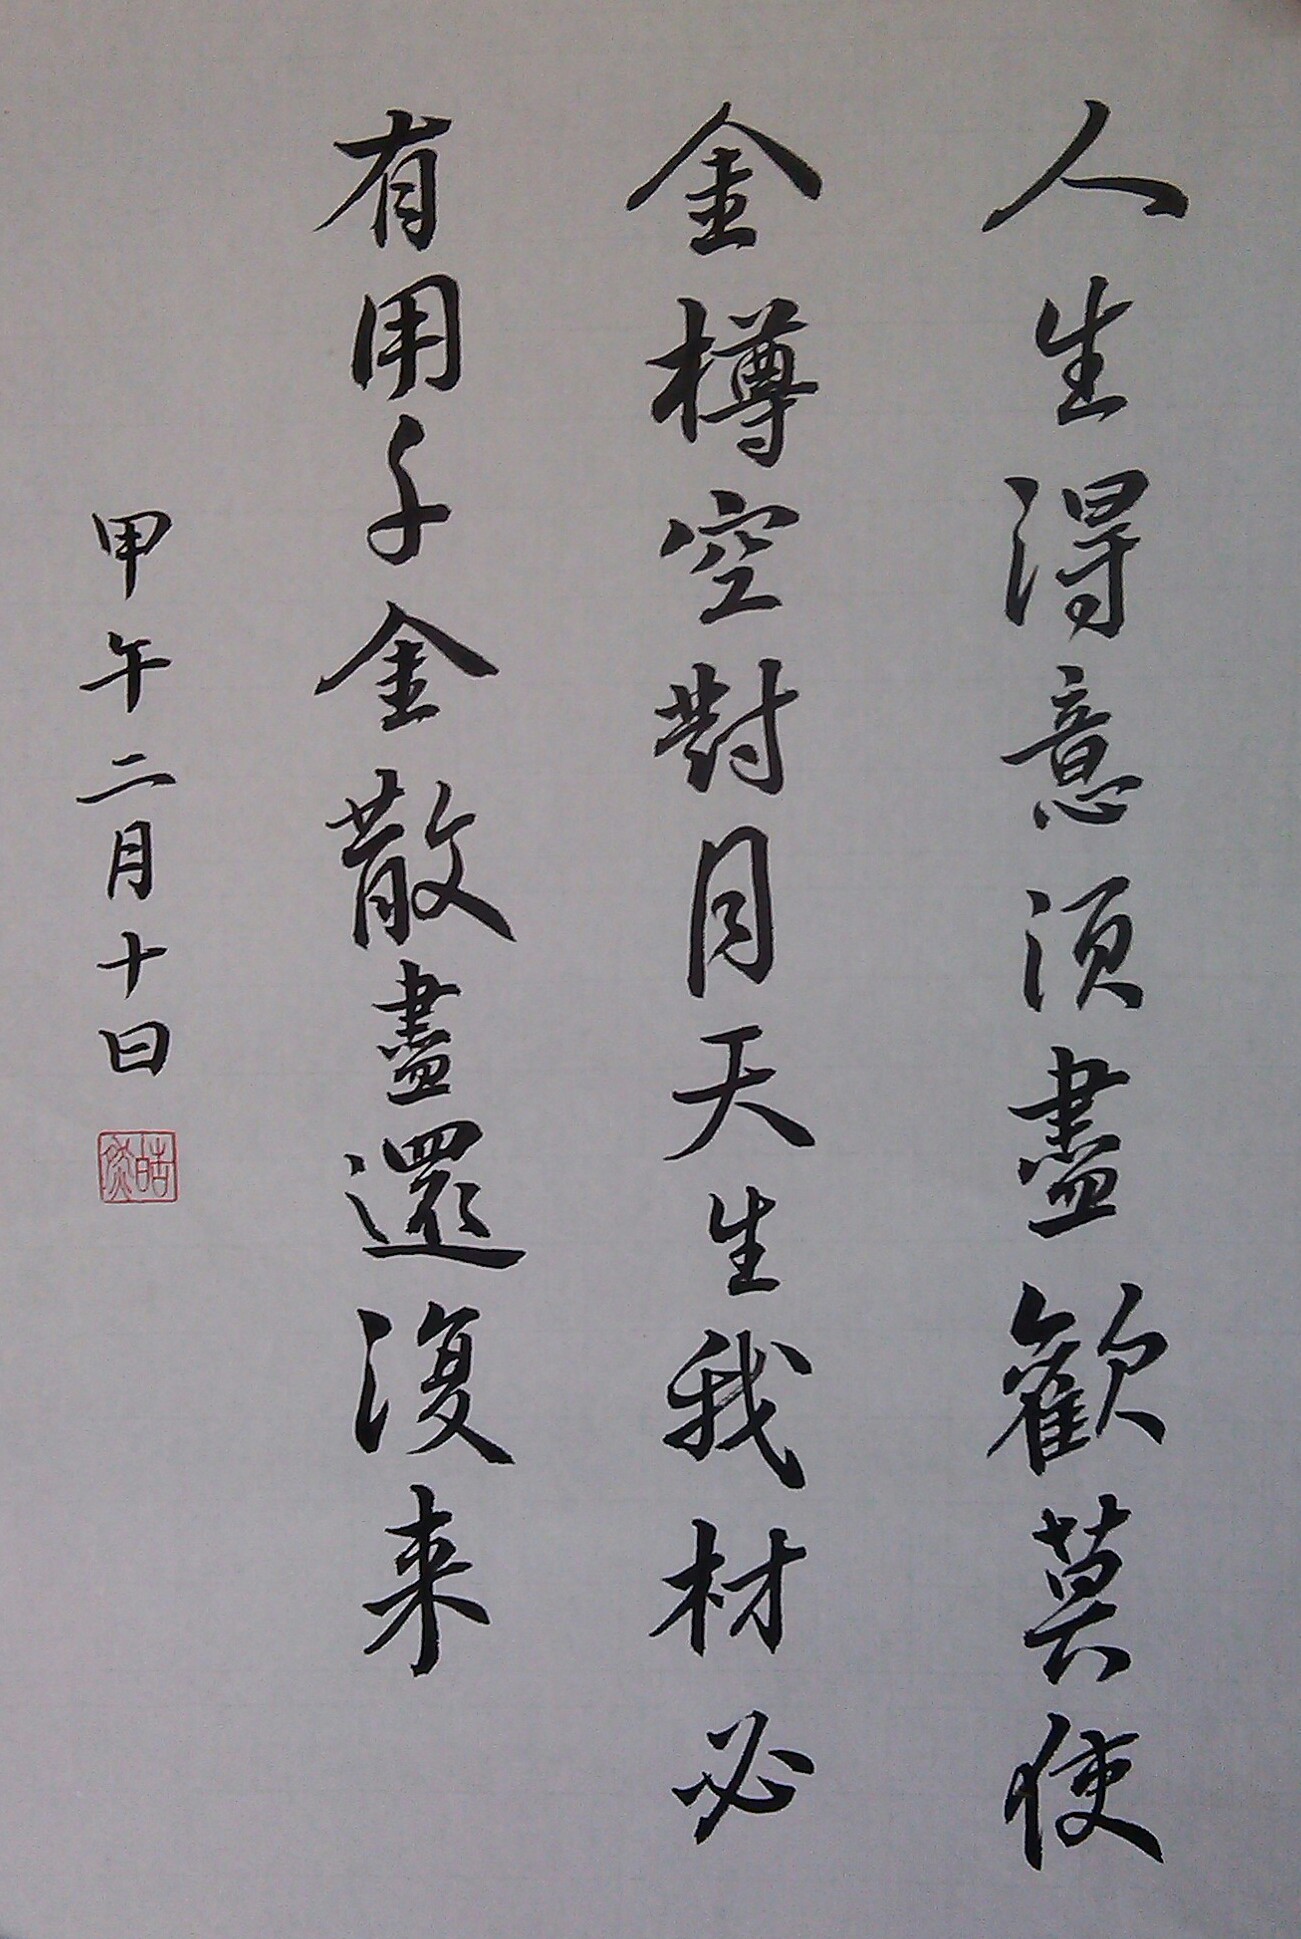 人生得意須盡歡莫使
金樽空對月天生我材必
有用千金散盡還復来
甲午二月十日